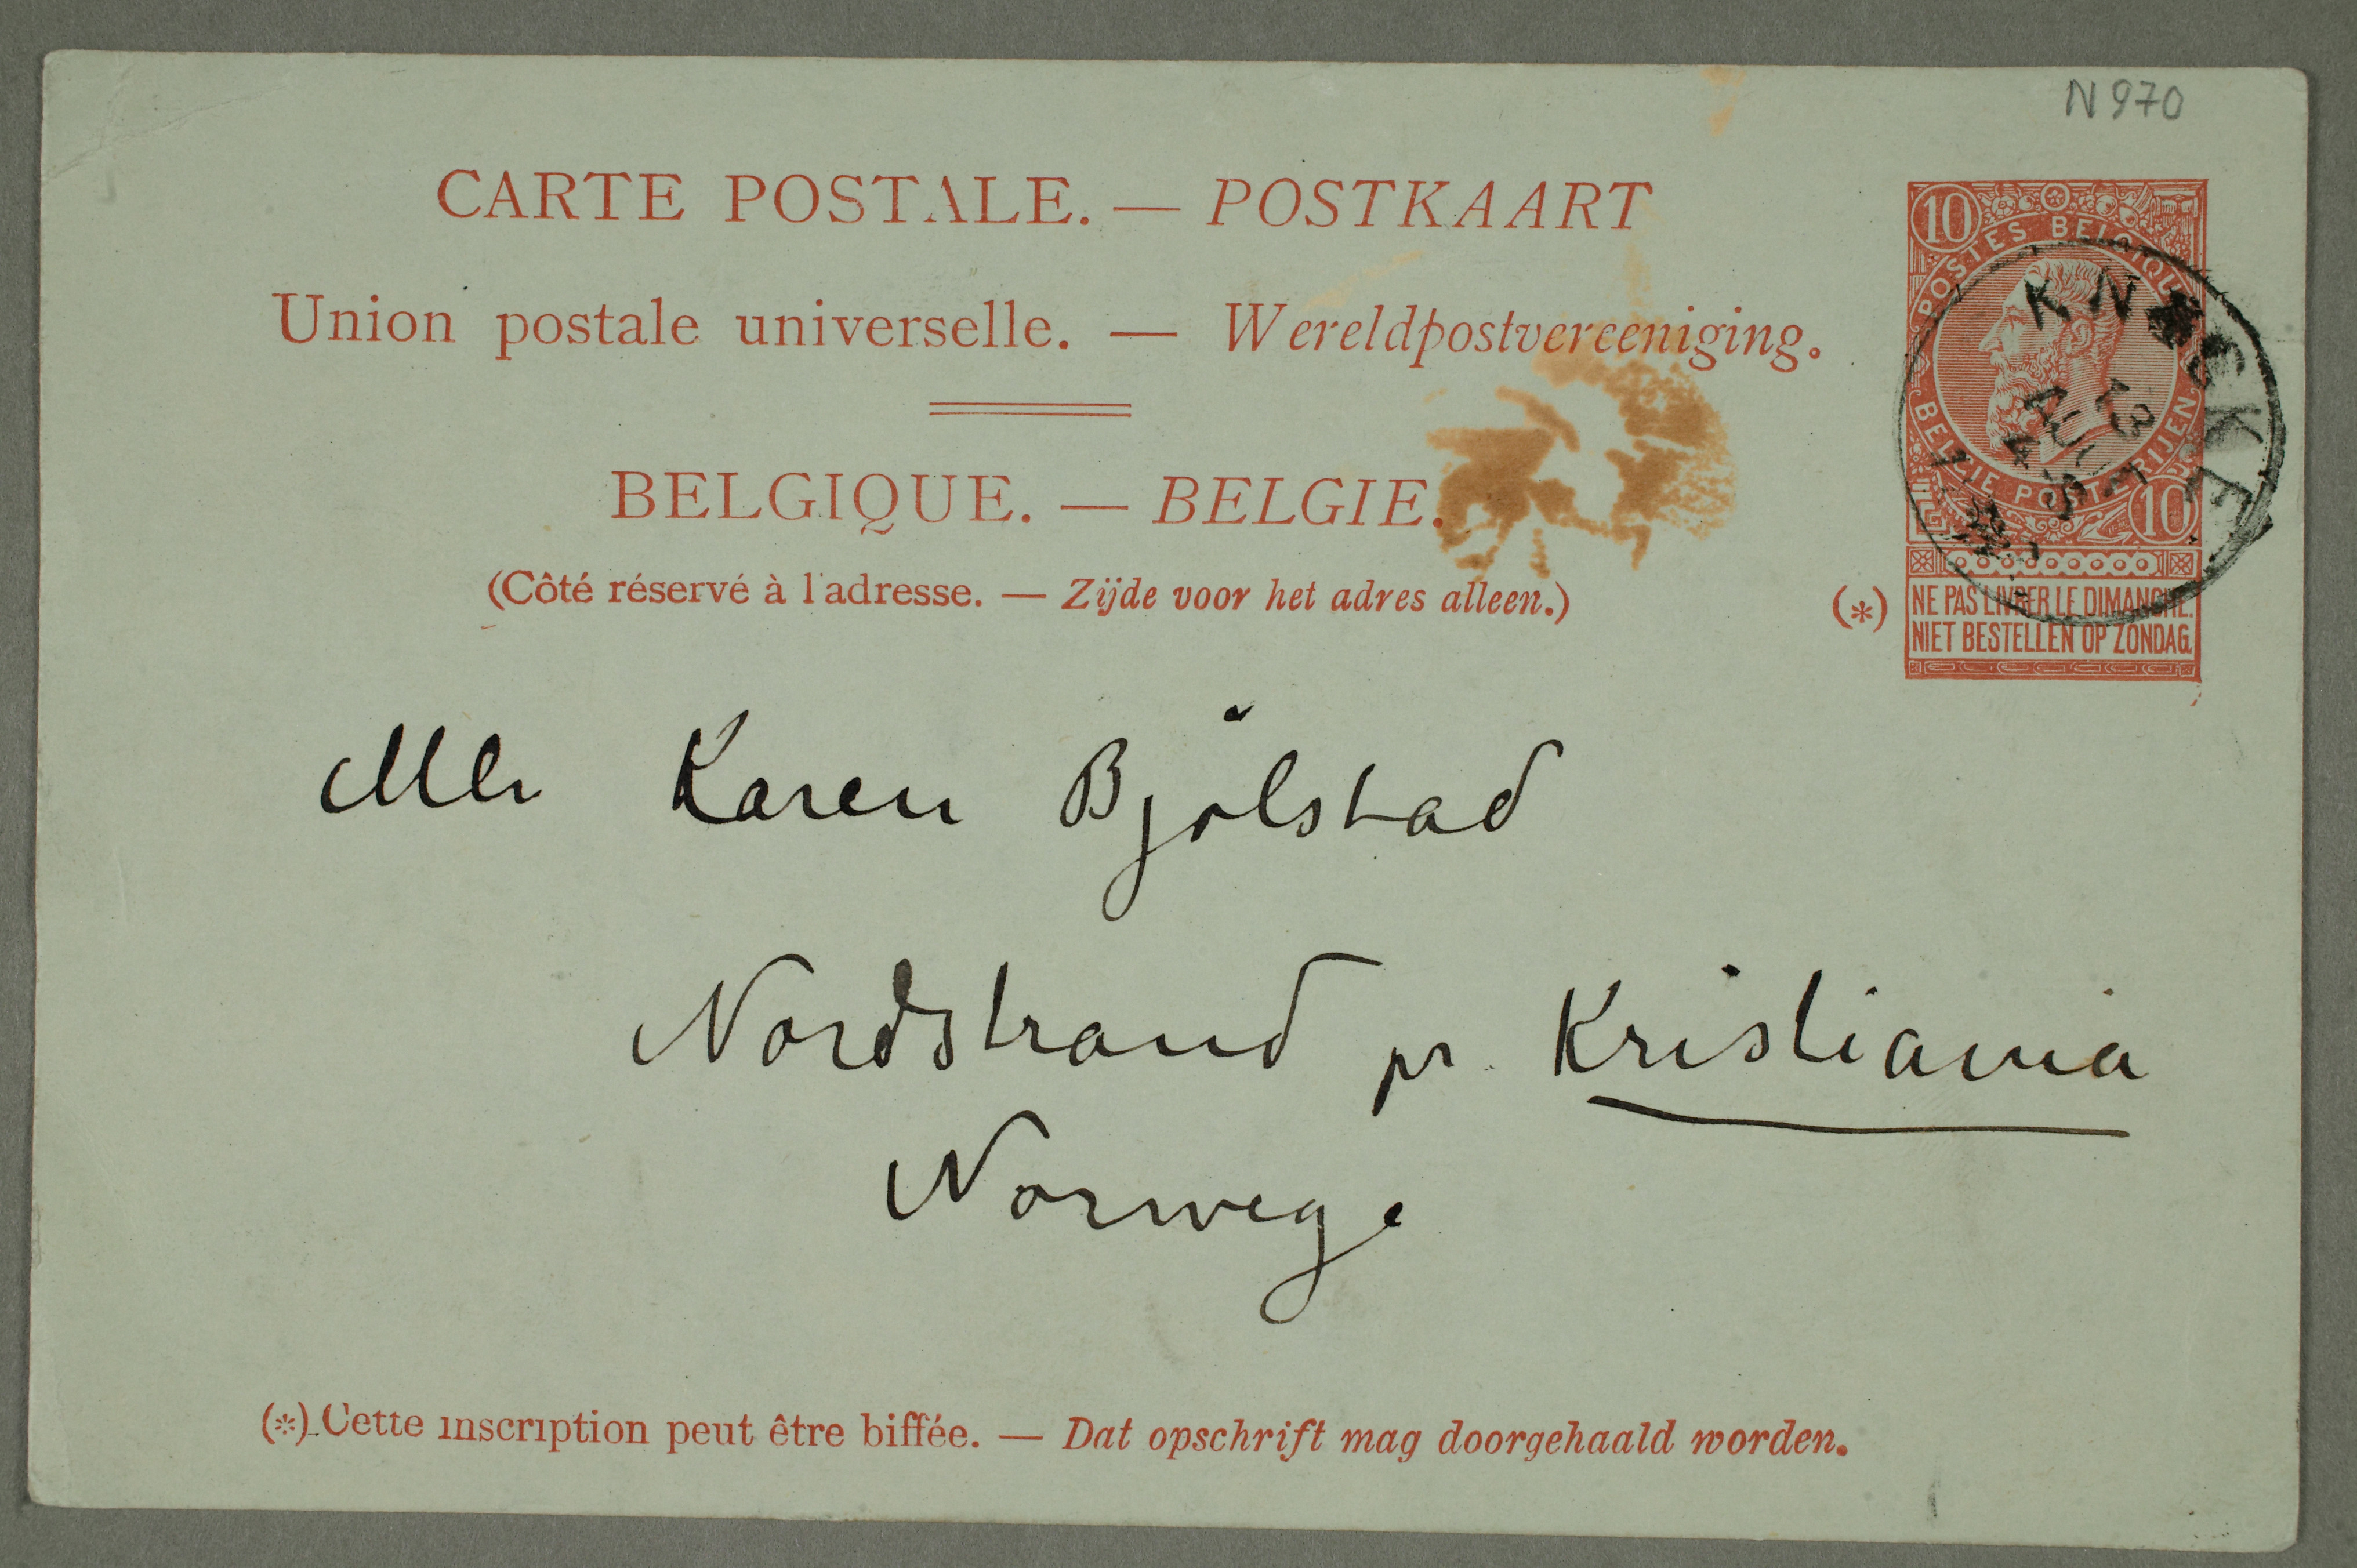 N 970
CARTE POSTALE. — POSTKAART
Union postale universelle. — Wereldpostvereeniging.
BELGIQUE. — BELGIE.
(Côté réservé à l'adresse. — Zijde voor het adres alleen.)
10
POSTES BELGIQUE
BELGIE POSTERIJEN
10
KNOCKE
13
AOUS
(*)
NE PAS LIVRER LE DIMANCHE.
NIET BESTELLEN OP ZONDAG.
Karen Bjölstad
Nordstrand pr. Kristiania
Norwege
(*) Cette inscription peut être biffée. — Dat opschrift mag doorgehaald worden.